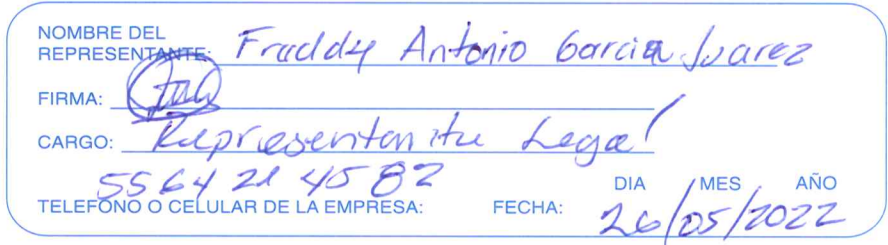 NOMBRE DEL
REPRESENTANTE: Fraddy Antonio Garcia Juarez
FIRMA:
CARGO: Representante Legal
5564 21 4582
DIA MES AÑO
TELEFONO O CELULAR DE LA EMPRESA: FECHA: 26/05/2022